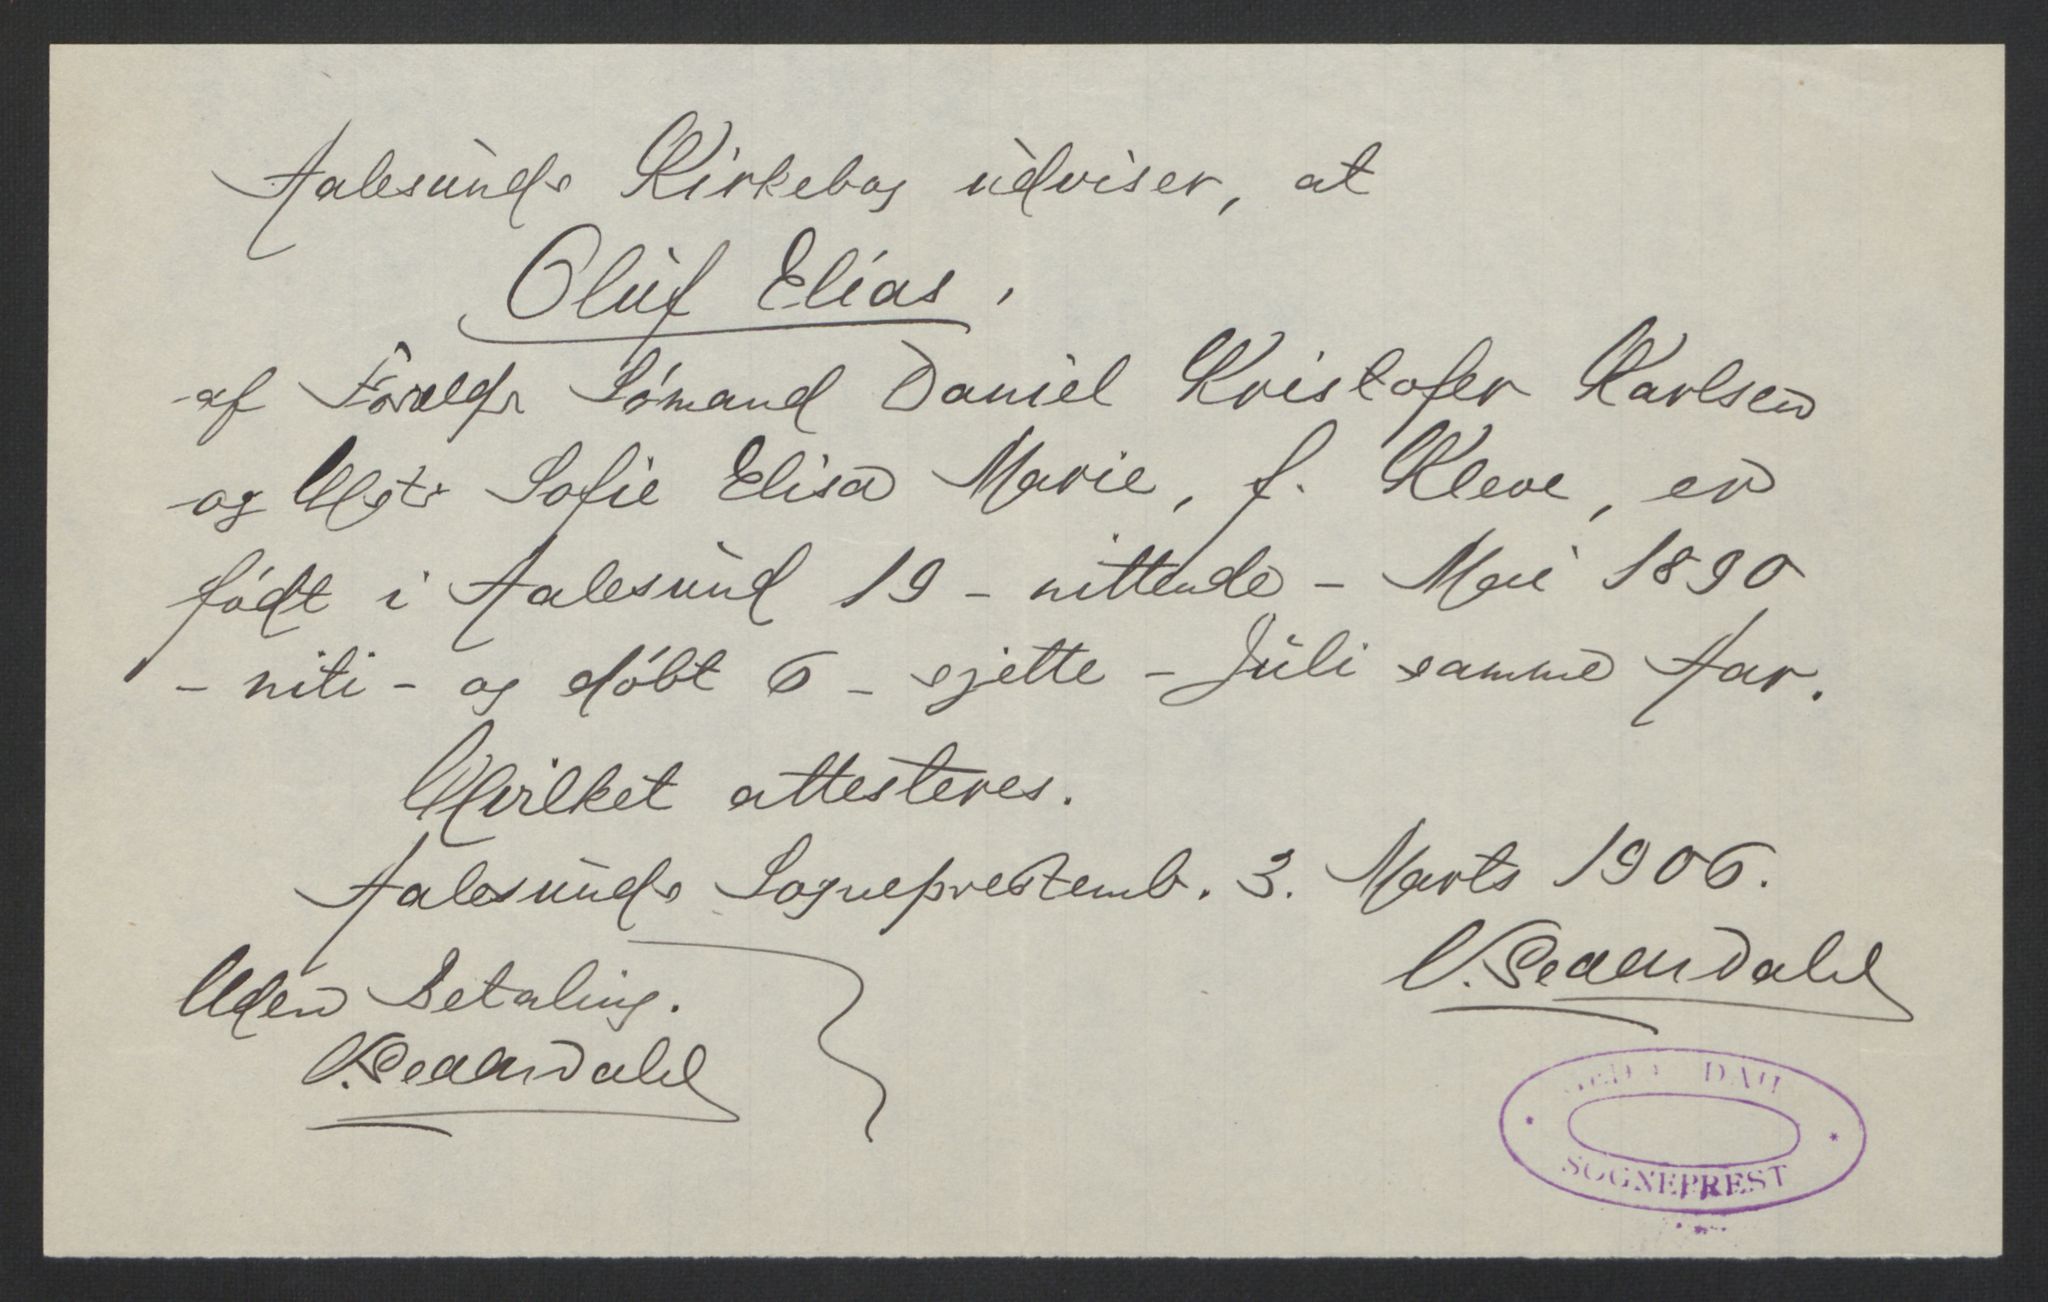 Aalesunds Kirkebog udviser, at
Oluf Elias,
af Foræld: Sómand Daniel Kristofer Karlsen
og Hst: Sofie Elisa Marie, f. Kleve, er
fódt i Aalesund 19 - nittende - Mai 1890
- niti - og dóbt 6 - sjette - Juli samme Aar.
Hvilket attesteres.
Aalesunds Sogneprestemb. 3. Marts 1906.
Uden Betaling.
SOGNEPREST